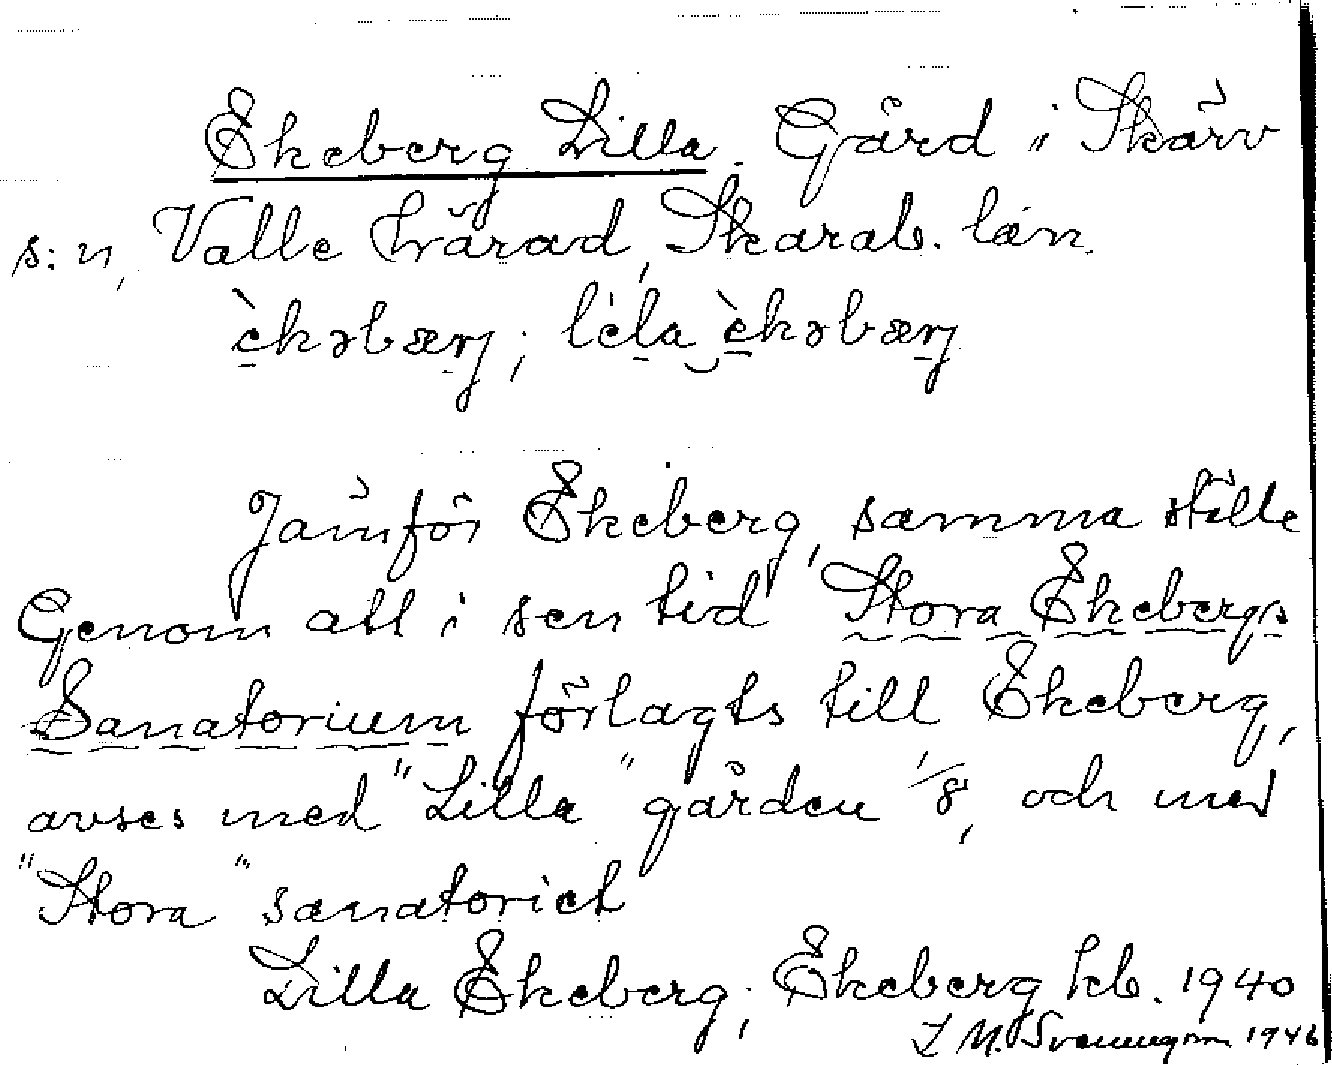 Ekeberg Lilla. Gård i Skärv
s:n, Valle härad, Skarab. län.
èkəbærj; lela èkəbærj
Jämför Ekeberg, samma ställe
Genom att i sen tid Stora Ekebergs
Sanatorium förlagts till Ekeberg,
avses med "Lilla" gården 1/8, och med
"Stora" sanatoriet
Lilla Ekeberg; Ekeberg kb. 1940
1946